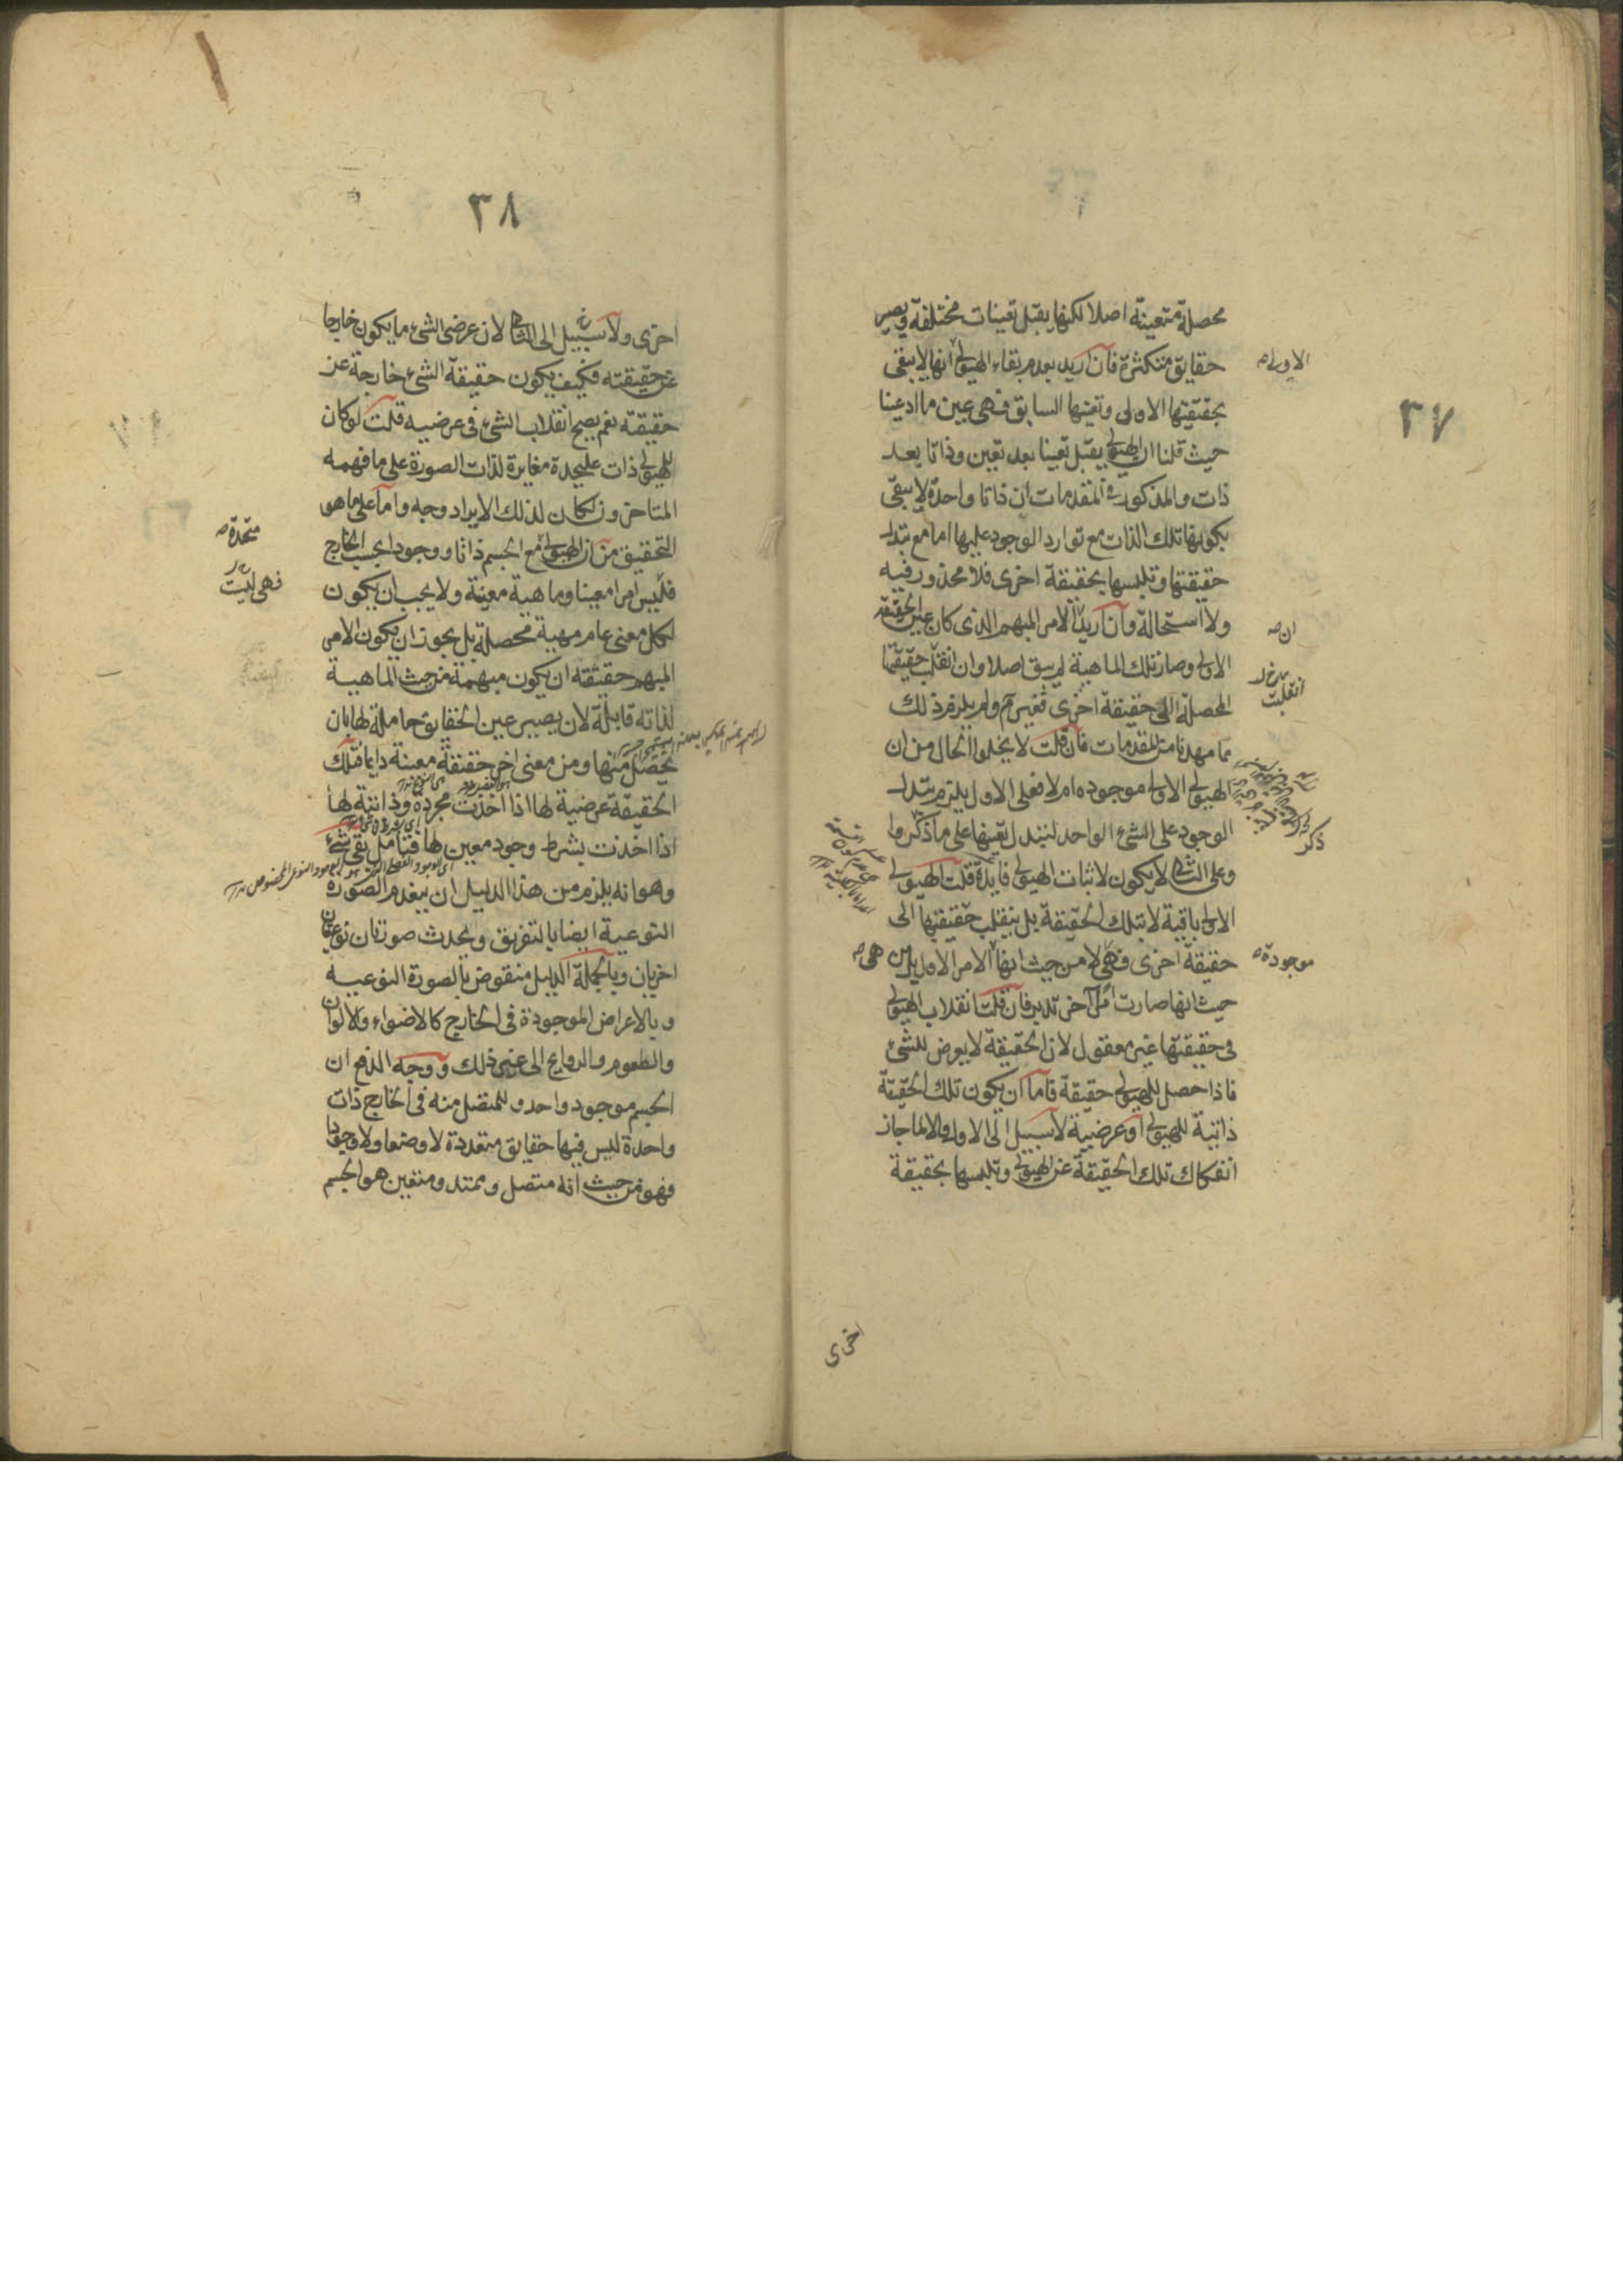 ٣٧
محصلة متعينة اصلا لكنها يقبل تعينات مختلفة ويصير
حقايق متكثرة فان اريد بعدم بقاء الهيولى انها لا يبقى
الاولى صه
بحقيقتها الاولى وتعينها السابق فهى عين ما ادعينا
حيث قلنا ان الهيولى يقبل تعينا بعد تعين وذاتا بعد
ذات والمذكور فى المقدمات ان ذاتا واحدة لا يبقى
بكونها تلك الذات مع توارد الوجود عليها اما مع تبدل
حقيقتها وتلبسها بحقيقة اخرى فلا محذور فيه
ولا استحالة وان اريد الامر المبهم الذى كان عين الحقيقة
ان صه
الاولى وصار تلك الماهية لم يبق اصلا وان انقلب حقيقتها
انقلبت
المحصلة الى حقيقة اخرى فغير م ولم يلزم ذلك
مما مهدنا من المقدمات فان قلت لا يخلوا الحال من ان
الهيولى الاولى موجوده ام لا فعلى الاول يلزم تبدل
الوجود على الشئ الواحد لتبدل تعينها على ما ذكروا
ذكر
وعلى الثانى لم يكون لاثبات الهيولى فايدة قلت الهيولى
الاولى باقية لا بتلك الحقيقة بل ينقلب حقيقتها الى
حقيقة اخرى فهى لا من حيث انها الامر الاول بل من
موجودة صه
هى صه
حيث انها صارت امرا آخر تدبر فان قلت انقلاب الهيولى
فى حقيقتها غير معقول لان الحقيقة لا يعرض للشئ
فاذا حصل للهيولى حقيقة فاما ان يكون تلك الحقيقة
ذاتية للهيولى او عرضية لا سبيل الى الاول والا لما جاز
انفكاك تلك الحقيقة عن الهيولى وتلبسها بحقيقة
اخرى
٣٨
اخرى ولا سبيل الى الثانى لان عرضى الشئ ما يكون خارجا
عن حقيقته فكيف يكون حقيقة الشئ خارجة عن
حقيقته نعم يصح انقلاب الشئ فى عرضيه قلت لو كان
للهيولى ذات عليحدة مغايرة لذات الصورة على ما فهمه
المتاخرون لكان لذلك الايراد وجه واما على ما هو
التحقيق من ان الهيولى مع الجسم ذاتا ووجودا بحسب الخارج
متحدة صه
فليس امرا معينا وماهية معينة ولا يجب ان يكون
فهى ليست
لكل معنى عام مهية محصلة بل يجوز ان يكون الامر
المبهم حقيقته ان يكون مبهمة من حيث الماهية
لذاته قابلة لان يصير عين الحقايق حاملة لها بان
يحصل منها ومن معنى اخر حقيقة معينة دايما فتلك
الحقيقة عرضية لها اذا اخذت مجردة وذاتية لها
اذا اخذت بشرط وجود معين لها فتامل بقى شئ
وهو انه يلزم من هذا الدليل ان ينعدم الصورة
النوعية ايضا بالتفريق ويحدث صورتان نوعيتان
اخريان وبالجملة الدليل منقوض بالصورة النوعيه
وبالاعراض الموجودة فى الخارج كالاضواء والالوان
والطعوم والروايح الى غير ذلك ووجه الدفع ان
الجسم موجود واحد وللمتصل منه فى الخارج ذات
واحدة ليس فيها حقايق متعددة لا وضعا ولا وجودا
فهو من حيث انه متصل وممتد ومتعين هو الجسم